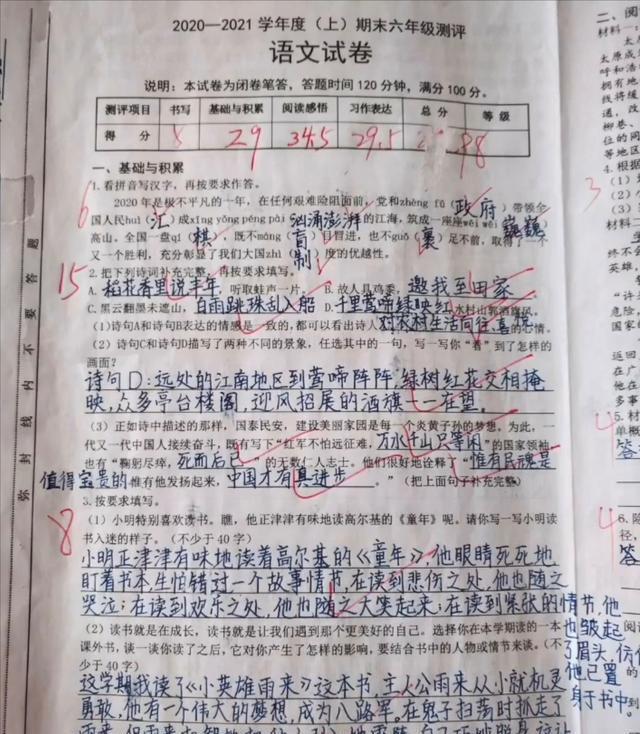 2020—2021 学年度（上）期末六年级测评
语文试卷
说明：本试卷为闭卷笔答，答题时间 120 分钟，满分 100 分。
测评项目 书写 基础与积累 阅读感悟 习作表达 总 分 等 级
得 分 29 34.5 29.5 98
一、基础与积累
1.看拼音写汉字，再按要求作答。
6
2020 年是极不平凡的一年，在任何艰难险阻面前，党和zhèng fǔ（政府）带领全
国人民huì（汇）成xīng yǒng péng pài 汹涌澎湃的江海，筑成一座座wēi wēi 巍巍
高山。全国一盘qí（棋），既不máng（盲）目冒进，也不guǒ（裹）足不前，取得了一个
又一个胜利，充分彰显了我们大国zhì（制）度的优越性。
15
2.把下列诗词补充完整，再按要求填写。
A.稻花香里说丰年，听取蛙声一片。 B.故人具鸡黍，邀我至田家
C.黑云翻墨未遮山，白雨跳珠乱入船 D.千里莺啼绿映红，水村山郭酒旗风。
（1）诗句A和诗句B表达的情感是一致的，都可以看出诗人对农村生活向往、喜悦的心情。
（2）诗句C和诗句D描写了两种不同的景象，任选其中的一句，写一写你“看”到了怎样的
画面？
诗句D：远处的江南地区到莺啼阵阵，绿树红花交相掩
映，众多亭台楼阁，迎风招展的酒旗一一在望。
（3）正如诗中描述的那样，国泰民安，建设美丽家园是每一个炎黄子孙的梦想。为此，一
代又一代中国人接续奋斗，既有写下“红军不怕远征难，万水千山只等闲”的国家领袖
也有“鞠躬尽瘁，死而后已”的无数仁人志士。他们很好地诠释了“惟有民魂是
值得宝贵的，惟有他发扬起来，中国才有真进步。”（把上面句子补充完整）
8
3.按要求填写。
（1）小明特别喜欢读书。瞧，他正津津有味地读着高尔基的《童年》呢。请你写一写小明读
书入迷的样子。（不少于 40 字）
小明正津津有味地读着高尔基的《童年》，他眼睛死死地
盯着书本，生怕错过一个故事情节，在读到悲伤之处，他也随之
哭泣；在读到欢乐之处，他也随之大笑起来；在读到紧张的情节，他
也皱起
了眉头，仿佛
他已置
身于书中
（2）读书就是在成长，读书就是让我们遇到那个更美好的自己。选择你在本学期读的一本
课外书，谈一谈你读了之后，它对你产生了怎样的影响，要结合书中的人物或情节来谈。（不
少于 40 字）
这学期我读了《小英雄雨来》这本书，主人公雨来从小就机灵
勇敢，他有一个伟大的梦想，成为八路军。在鬼子扫荡时抓走了
二、阅
材料一：
3
4
4